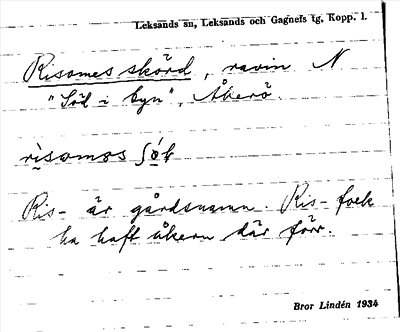 Leksands sn, Leksands och Gagnefs tg, Kopp. l.
Risomes skörd, ravin N
"Söl i byn", Åkerö.
Ris- är gårdsnamn. Ris-folk
ha haft åkern där förr.
Bror Lindén 1934